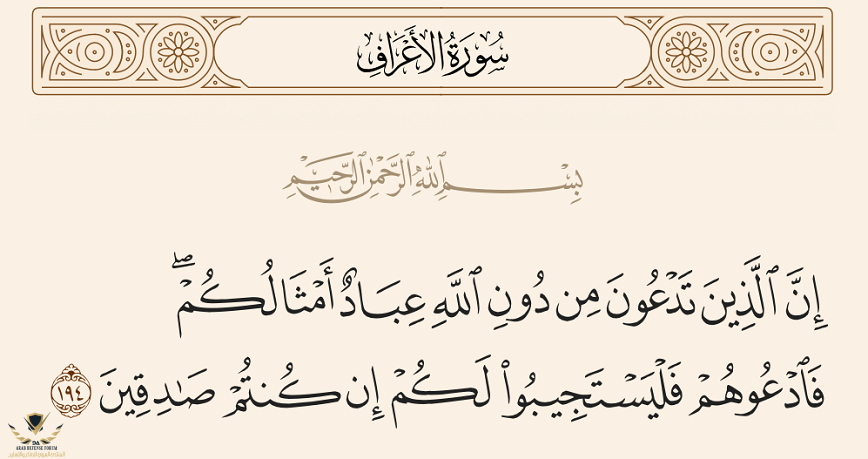 سُورَةُ الأَعْرَافِ
بِسْمِ اللَّهِ الرَّحْمَٰنِ الرَّحِيمِ
إِنَّ ٱلَّذِينَ تَدْعُونَ مِن دُونِ ٱللَّهِ عِبَادٌ أَمْثَالُكُمْۖ
فَٱدْعُوهُمْ فَلْيَسْتَجِيبُوا۟ لَكُمْ إِن كُنتُمْ صَـٰدِقِينَ ١٩٤
DA
ARAB DEFENSE FORUM